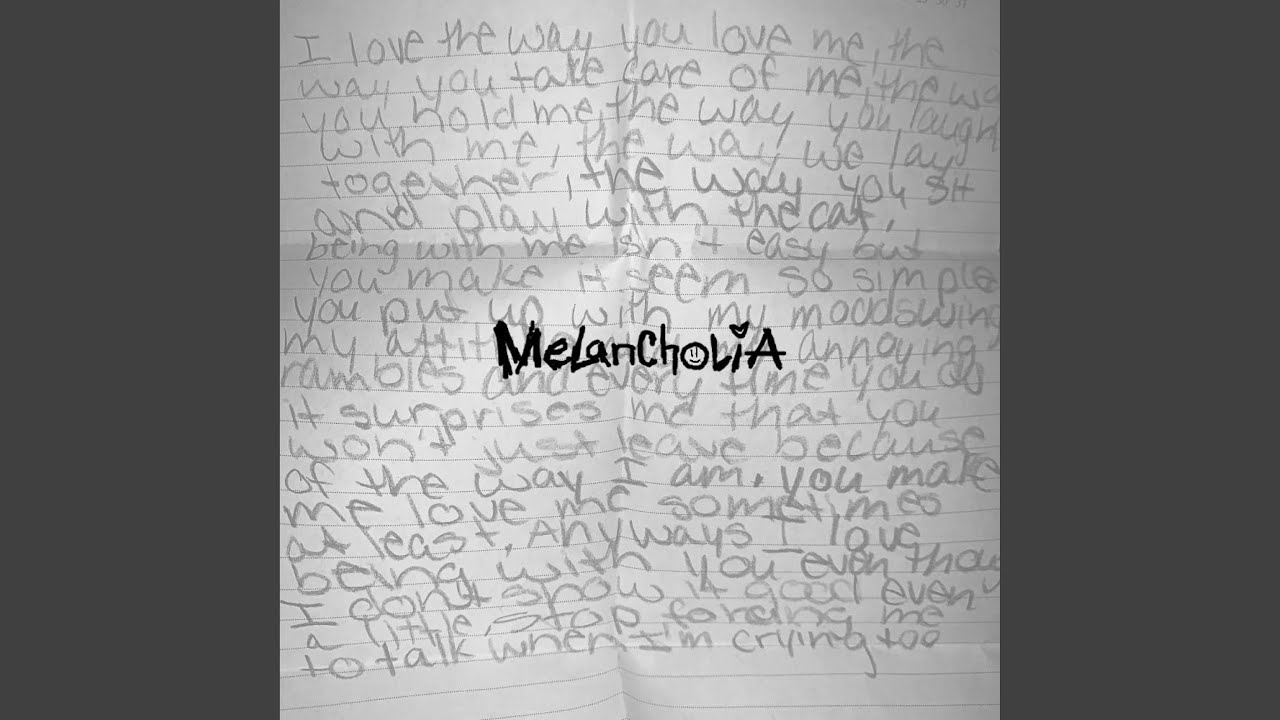 I love the way you love me, the
way you take care of me, the wa
you hold me, the way you laugh
with me, the way we lay
together, the way you sit
and play with the cat,
being with me isn't easy but
you make it seem so simple
you put up with my moodswing
my attit annoying
MelanCholiA
rambles and every time you do
it surprises me that you
won't just leave because
of the way I am. you make
me love me sometimes
at least. Anyways I love
being with you even thou
I don't show it good even
a little, stop forcing me
to talk when I'm crying too